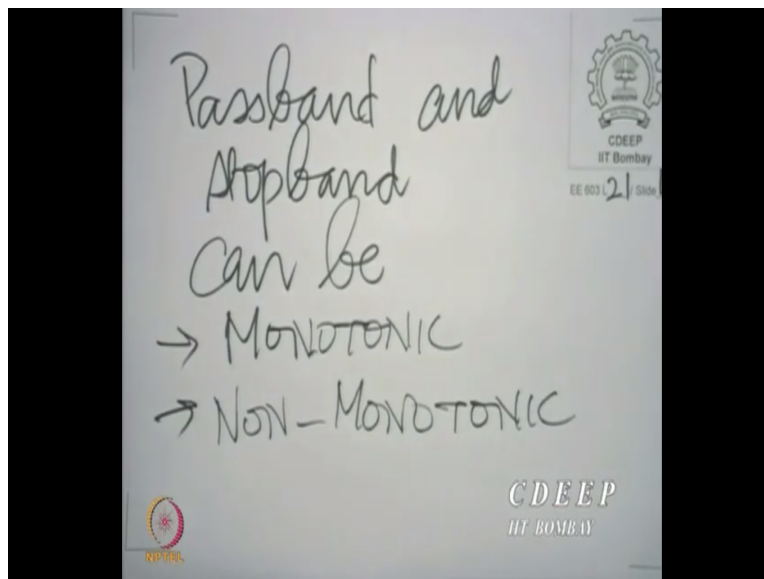 Passband and
stopband
can be
→ MONOTONIC
→ NON-MONOTONIC
CDEEP
IIT Bombay
EE 603 L 21 / Slide
CDEEP
IIT BOMBAY
NPTEL